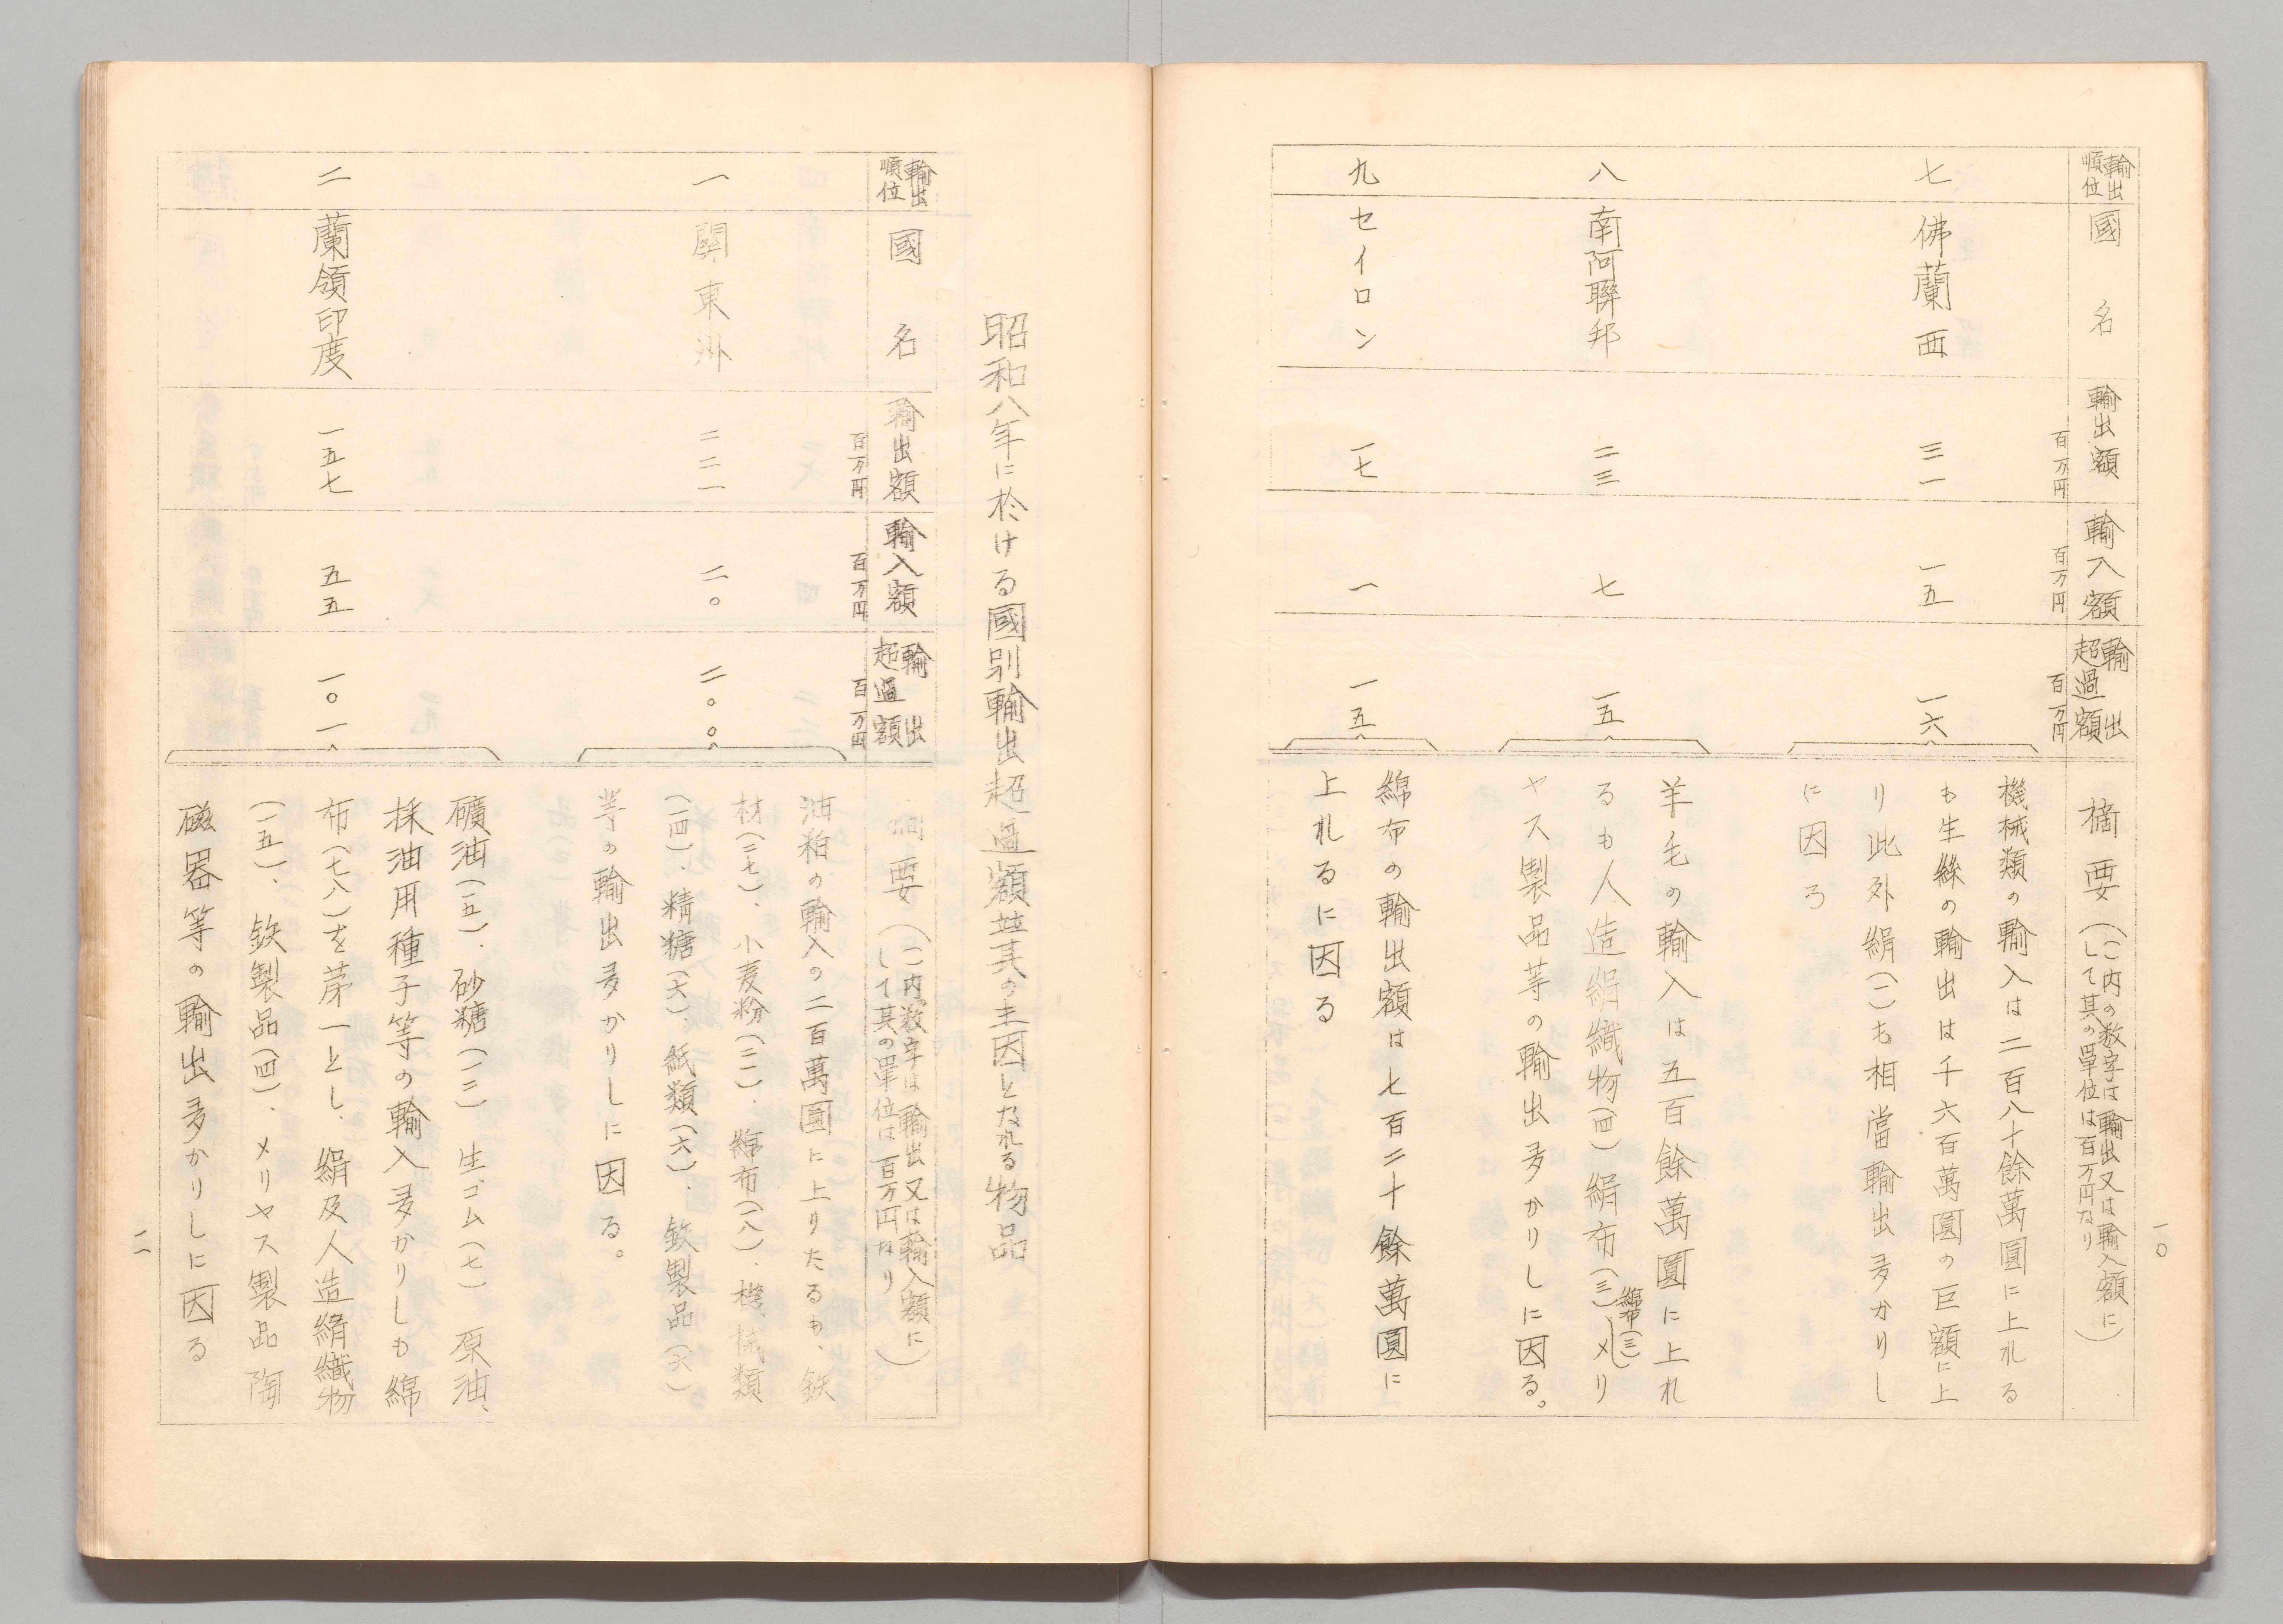 一〇
輸出順位
國名
輸出額
百万円
輸入額
百万円
輸出超過額
百万円
摘要
(()内の数字は輸出又は輸入額に
して其の單位は百万円なり)
七
佛蘭西
三一
一五
一六
機械類の輸入は二百八十餘萬圓に上れる
も生絲の輸出は千六百萬圓の巨額に上
り此外絹(一)も相當輸出多かりし
に因る
八
南阿聯邦
二三
七
一五
羊毛の輸入は五百餘萬圓に上れ
るも人造絹織物(四)絹布(三)綿布(三)メリ
ヤス製品等の輸出多かりしに因る。
九
セイロン
一七
一
一五
綿布の輸出額は七百二十餘萬圓に
上れるに因る
昭和八年に於ける國別輸出超過額並其の主因となれる物品
輸出順位
國名
輸出額
百万円
輸入額
百万円
輸出超過額
百万円
摘要
(()内数字は輸出又は輸入額に
して其の單位は百万円なり)
一
關東洲
二二一
二〇
二〇〇
油粕の輸入の二百萬圓に上りたるも、鉄
材(二七)、小麦粉(二二)、綿布(一八)、機械類
(一四)、精糖(六)、紙類(六)、鉄製品(六)
等の輸出多かりしに因る。
二
蘭領印度
一五七
五五
一〇一
礦油(一五)、砂糖(一三)生ゴム(七)原油、
採油用種子等の輸入多かりしも綿
布(七八)を第一とし、絹及人造絹織物
(一五)、鉄製品(四)、メリヤス製品陶
磁器等の輸出多かりしに因る
一一